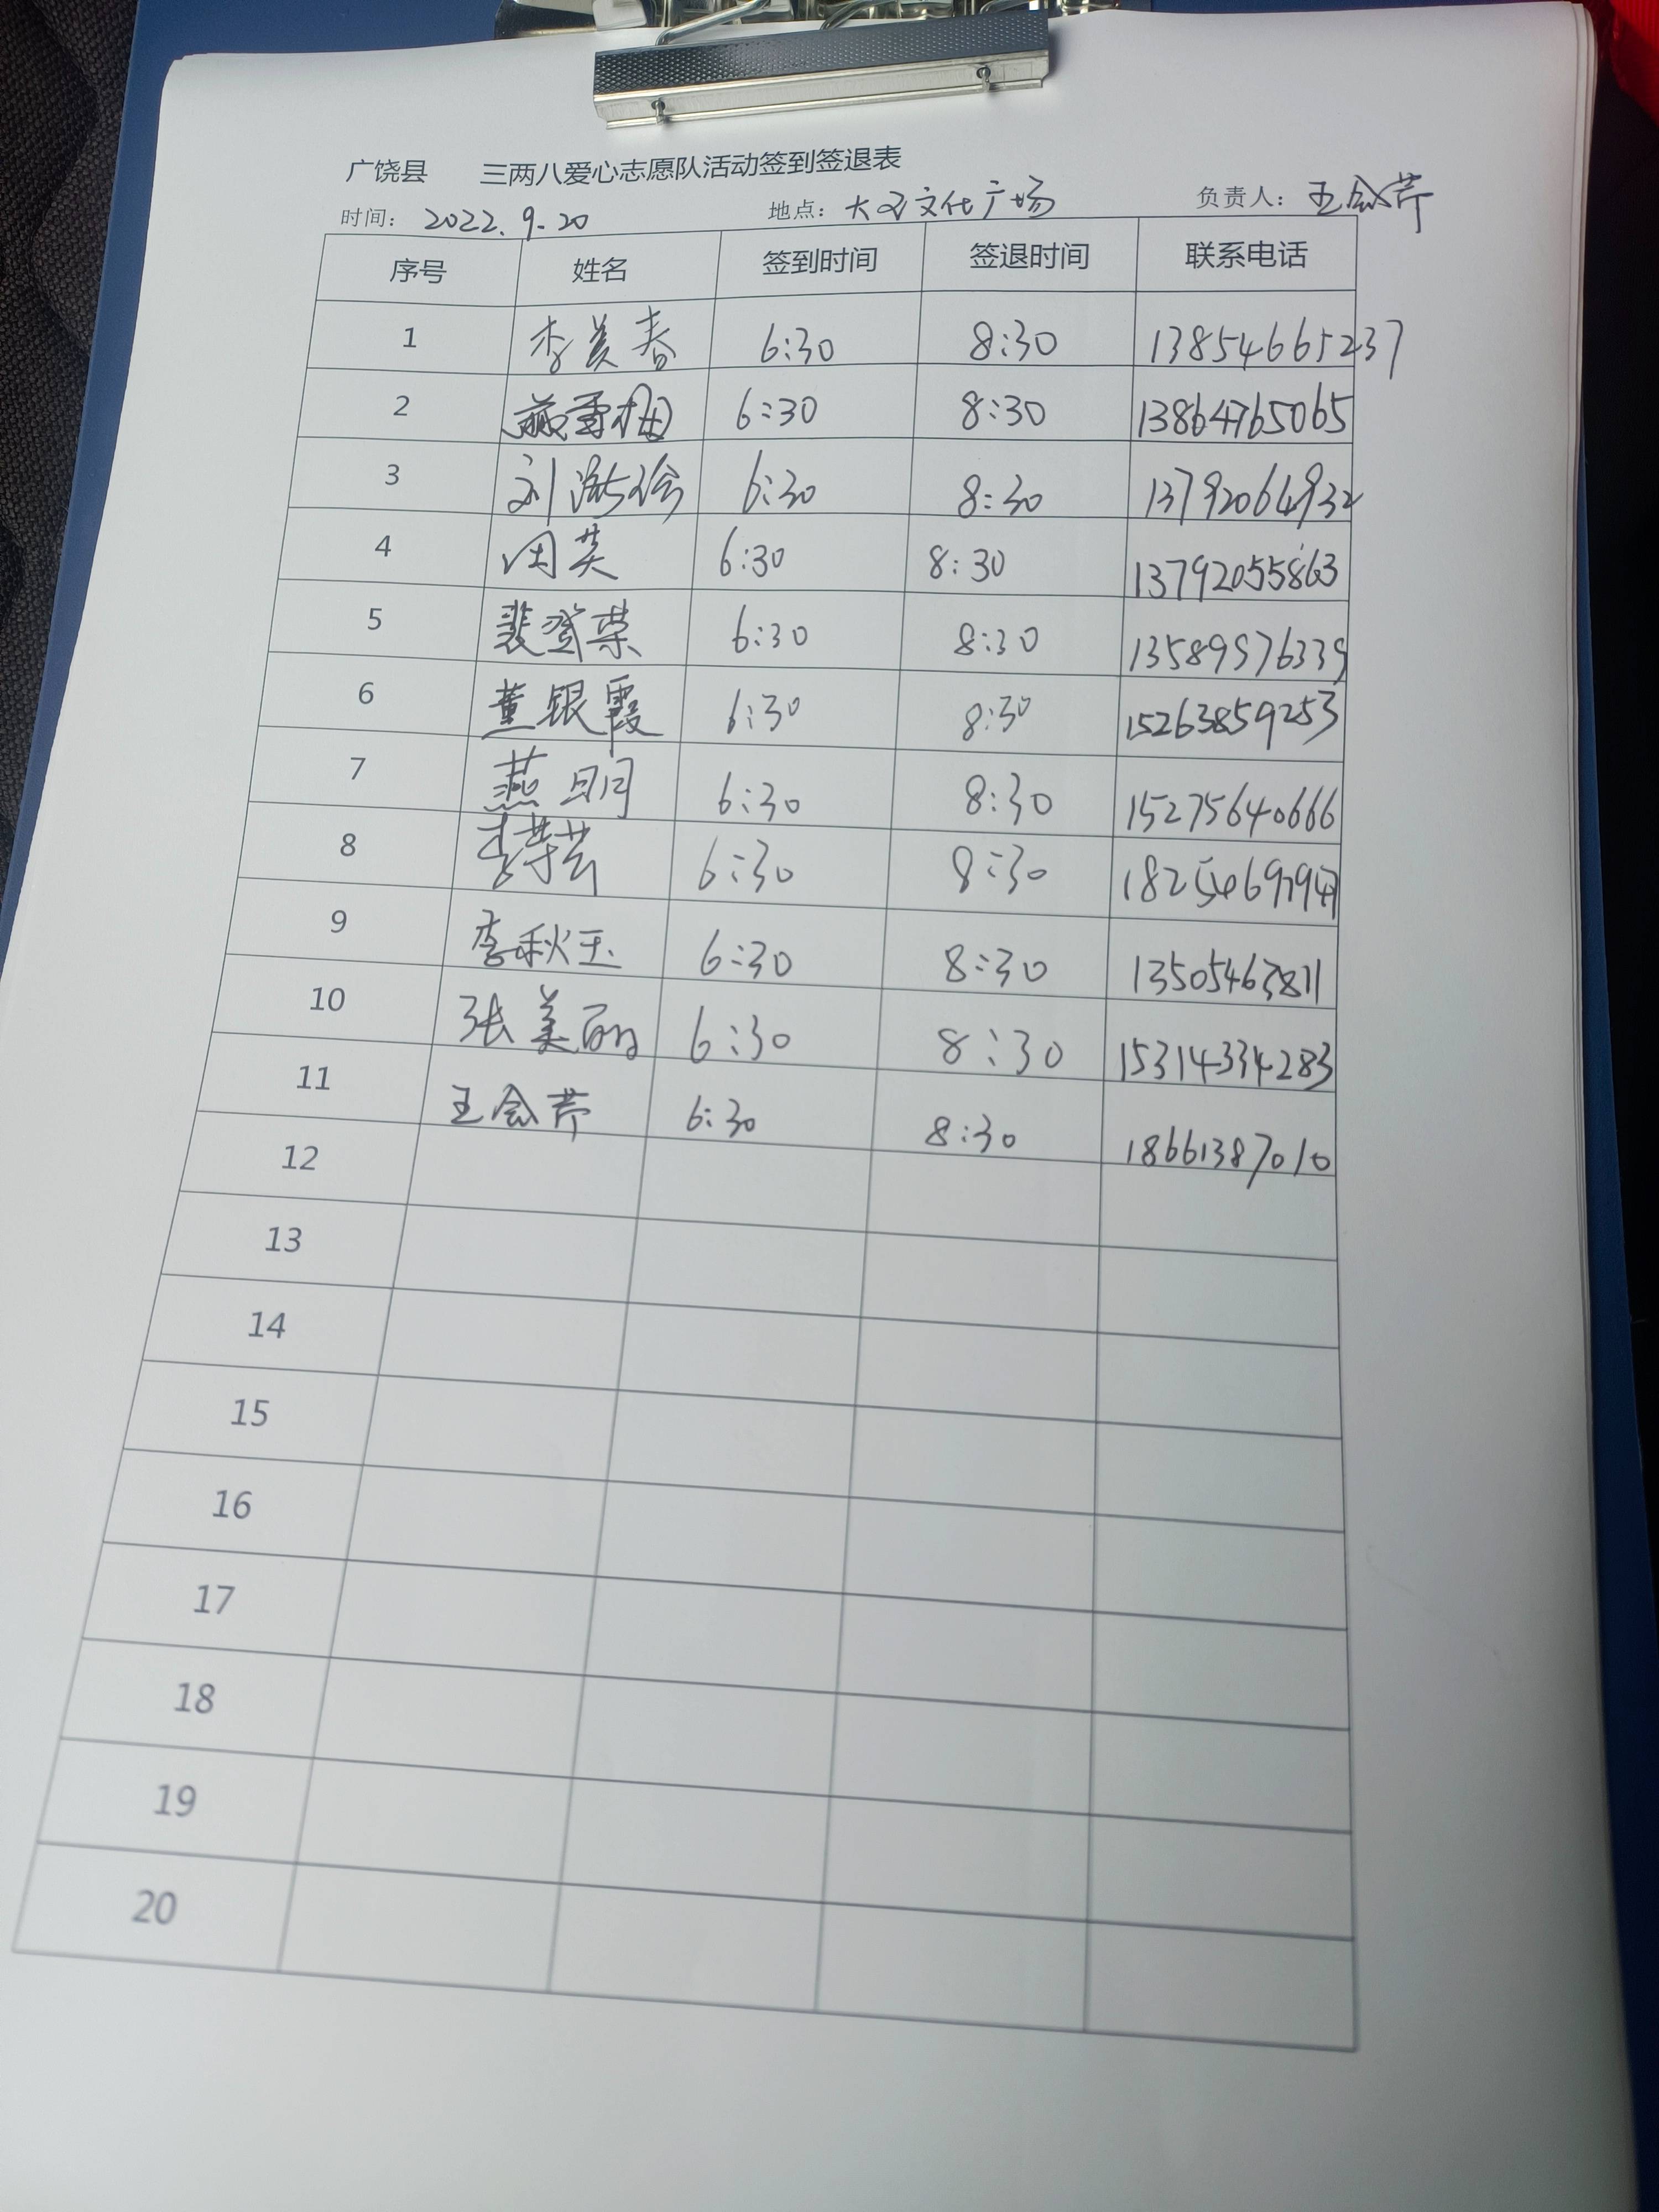 广饶县 三两八爱心志愿队活动签到签退表
时间: 2022.9.20 地点: 大王文化广场 负责人: 王会芹
序号 姓名 签到时间 签退时间 联系电话
1 李美春 6:30 8:30 13854665237
2 燕雪梅 6:30 8:30 13864765065
3 刘 6:30 8:30 13792064932
4 田英 6:30 8:30 13792055863
5 裴登荣 6:30 8:30 13589976339
6 董银霞 6:30 8:30 15263859253
7 燕明 6:30 8:30 15275640666
8 李荣芸 6:30 8:30
9 李秋玉 6:30 8:30 13505463811
10 张美丽 6:30 8:30 15314334283
11 王会芹 6:30 8:30 18661387010
12
13
14
15
16
17
18
19
20